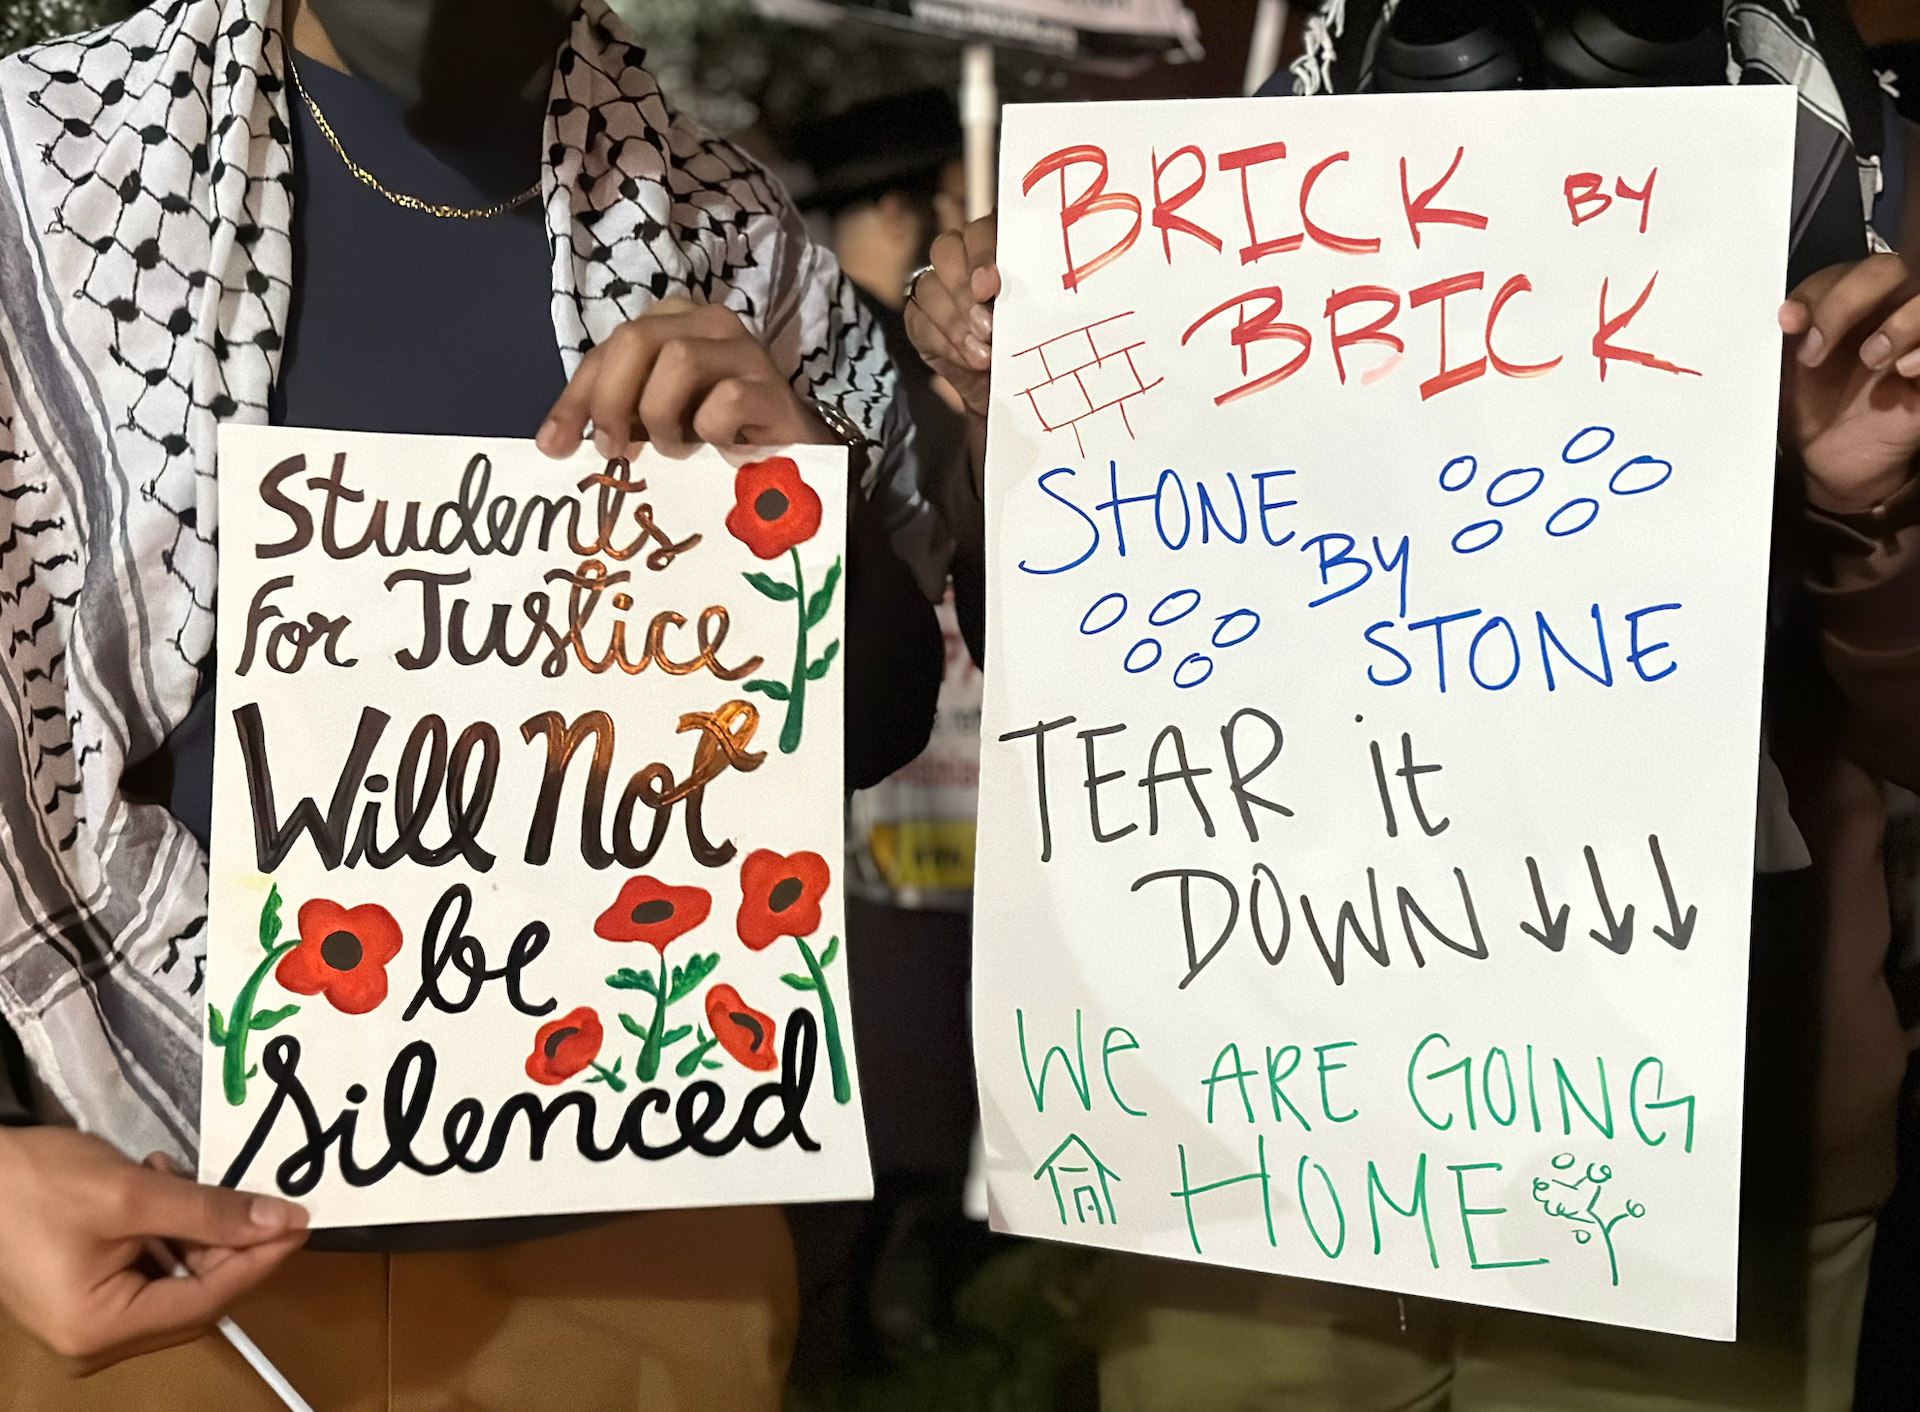 Students
For Justice
Will Not
be
Silenced
BRICK BY
BRICK
STONE
BY
STONE
TEAR it
DOWN
We ARE GOING
HOME